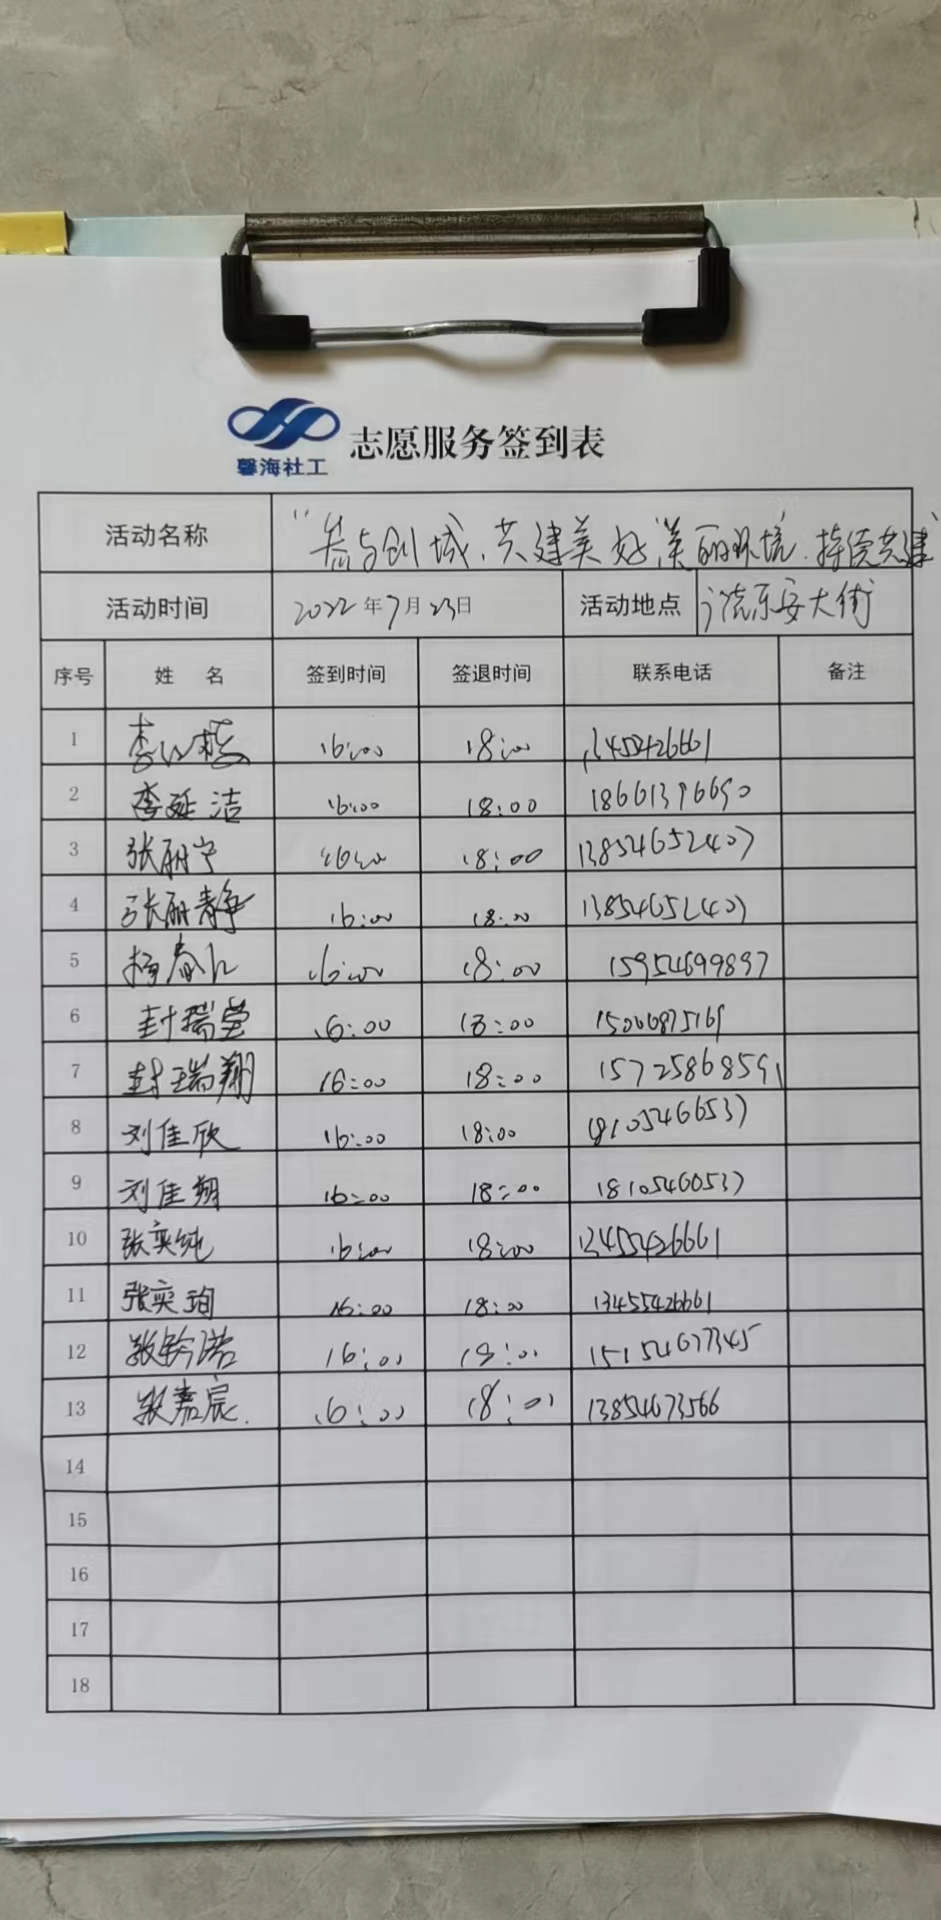 馨海社工
志愿服务签到表
活动名称 "参与创城、共建美好、美丽环境、持续共建"
活动时间 2022年7月23日 活动地点 广饶东安大街
序号 姓 名 签到时间 签退时间 联系电话 备注
1 16:00 18:00
2 李延洁 16:00 18:00 18661396690
3 张丽宁 16:00 18:00 13854652407
4 张丽静 16:00 18:00 13854652407
5 16:00 18:00 15954699897
6 封瑞莹 16:00 18:00 15006875169
7 封瑞翔 16:00 18:00 15725868591
8 刘佳欣 16:00 18:00
9 刘佳翔 16:00 18:00 18105460537
10 张奕纯 16:00 18:00 13455426661
11 张奕珣 16:00 18:00 13455426661
12 16:00 18:00 15154677345
13 张嘉宸. 16:00 18:00 13854673566
14
15
16
17
18